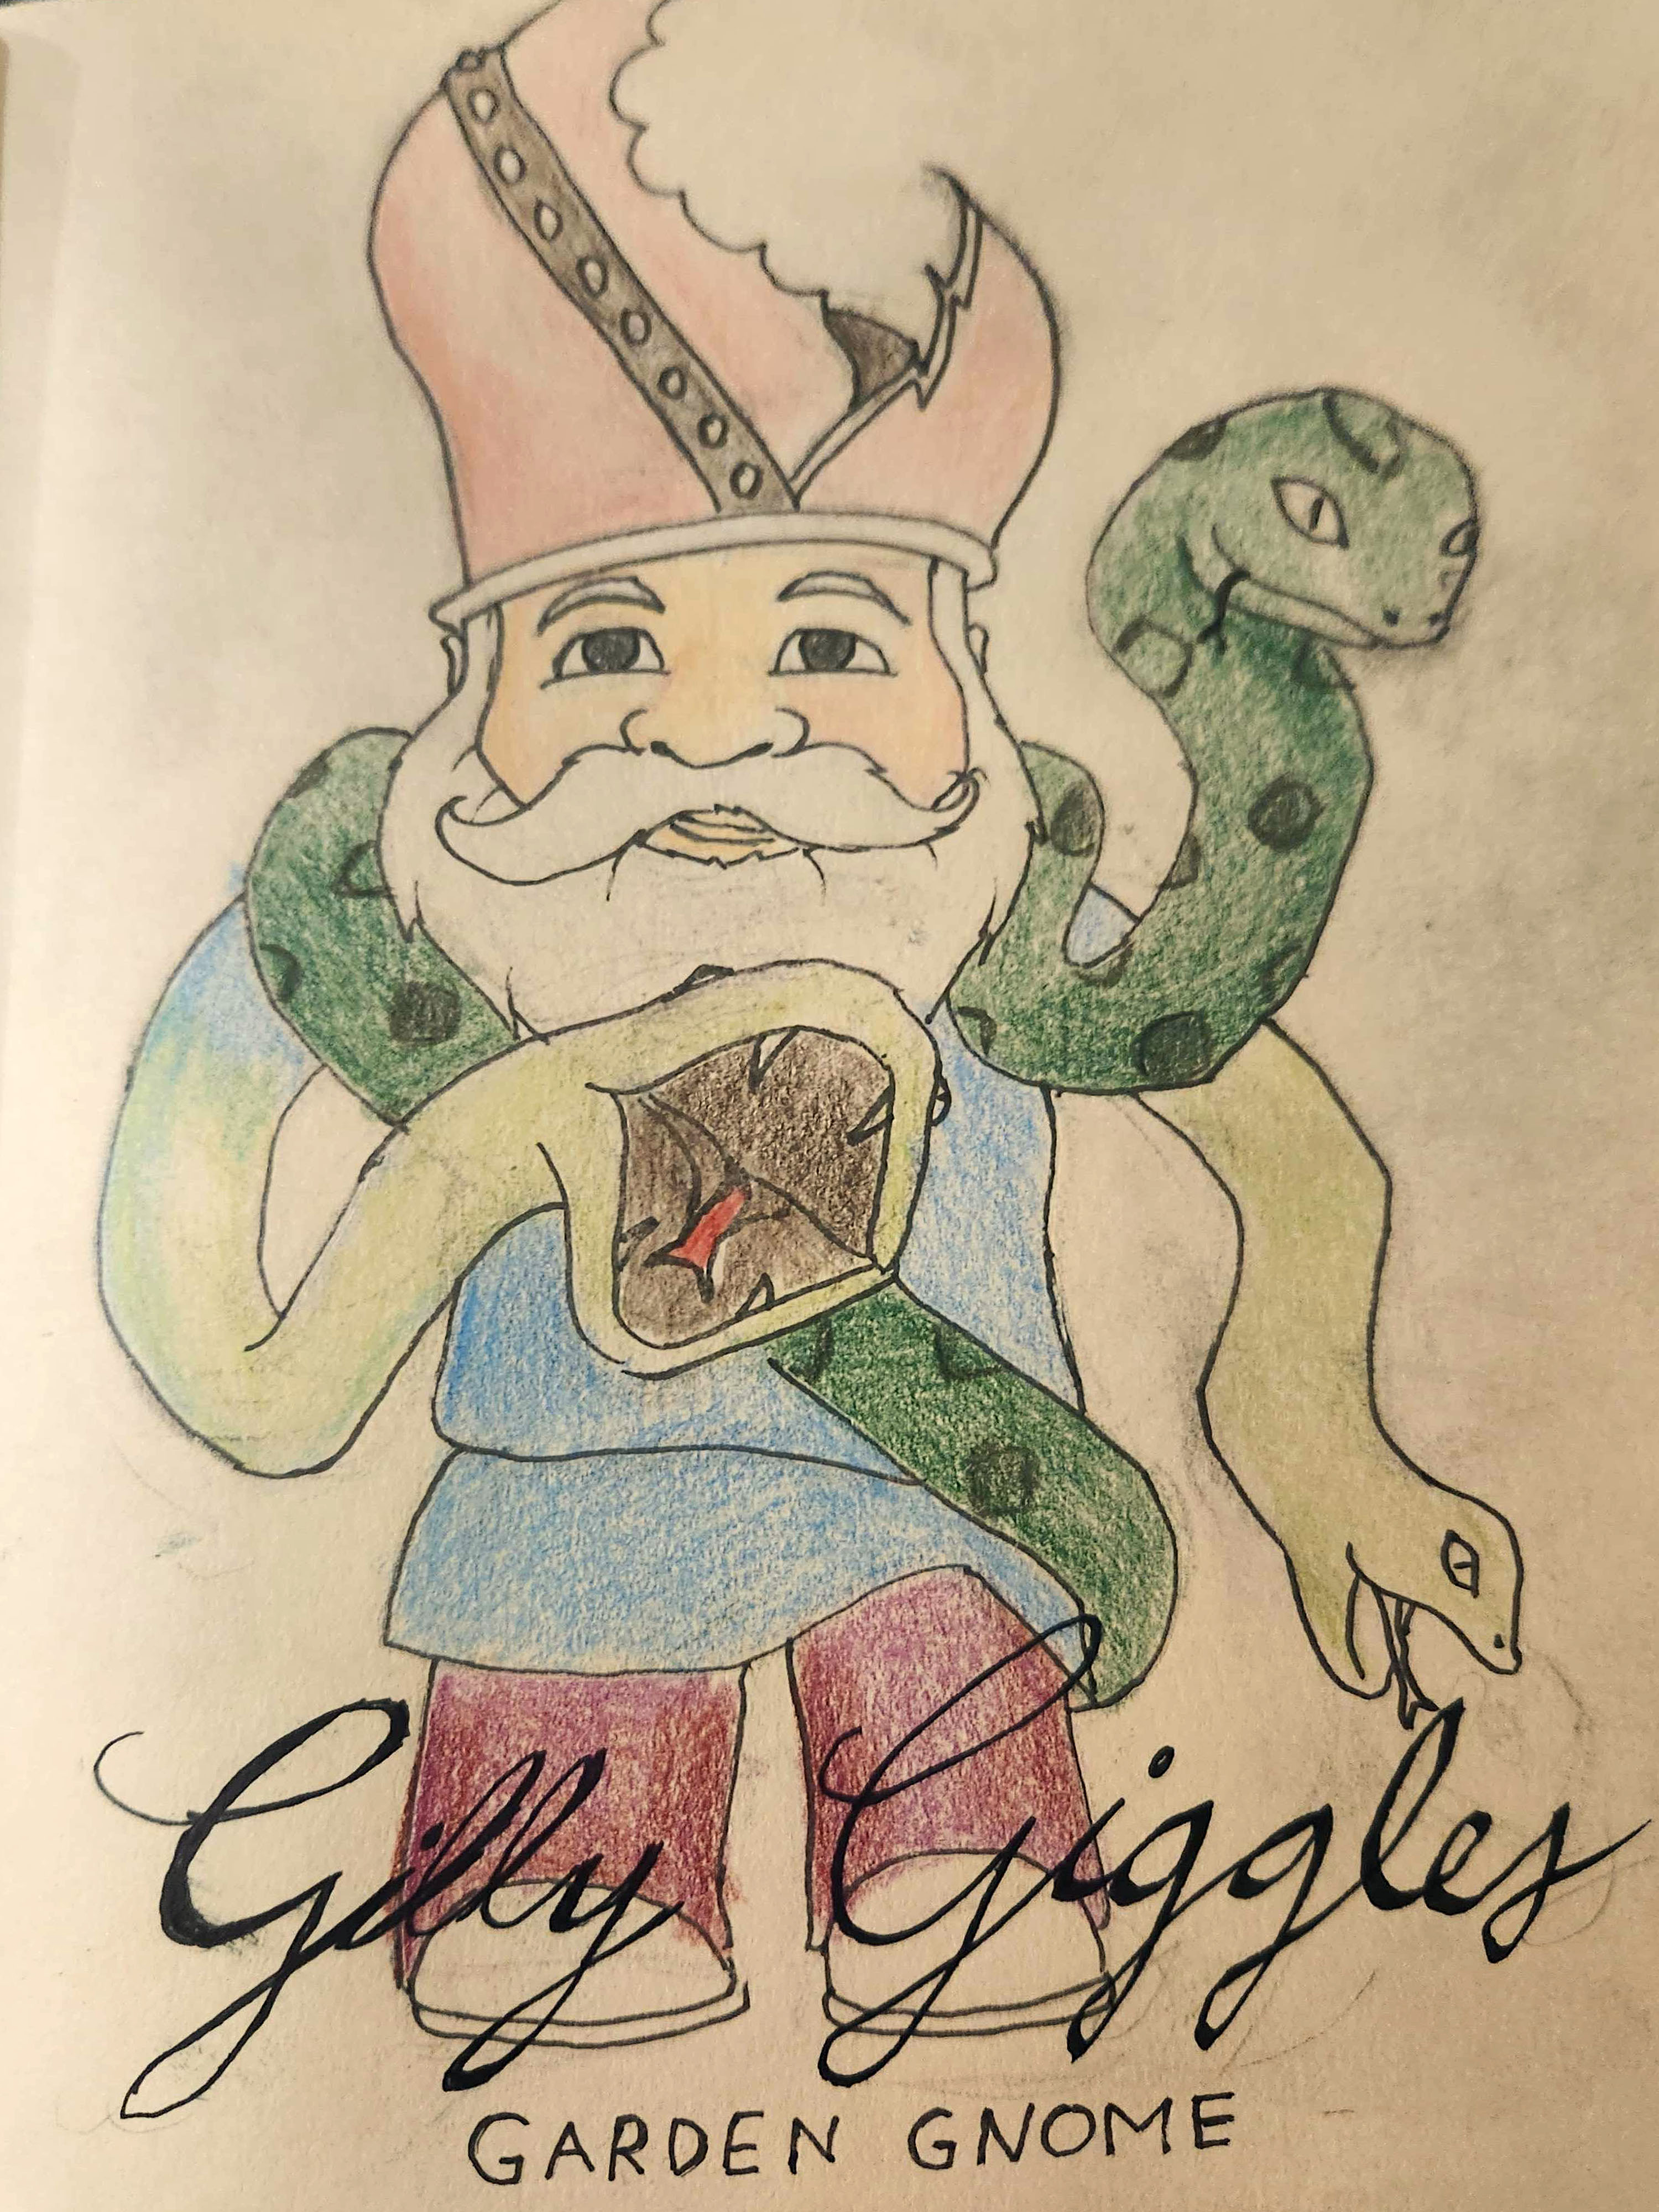 Gilly Giggles
GARDEN GNOME